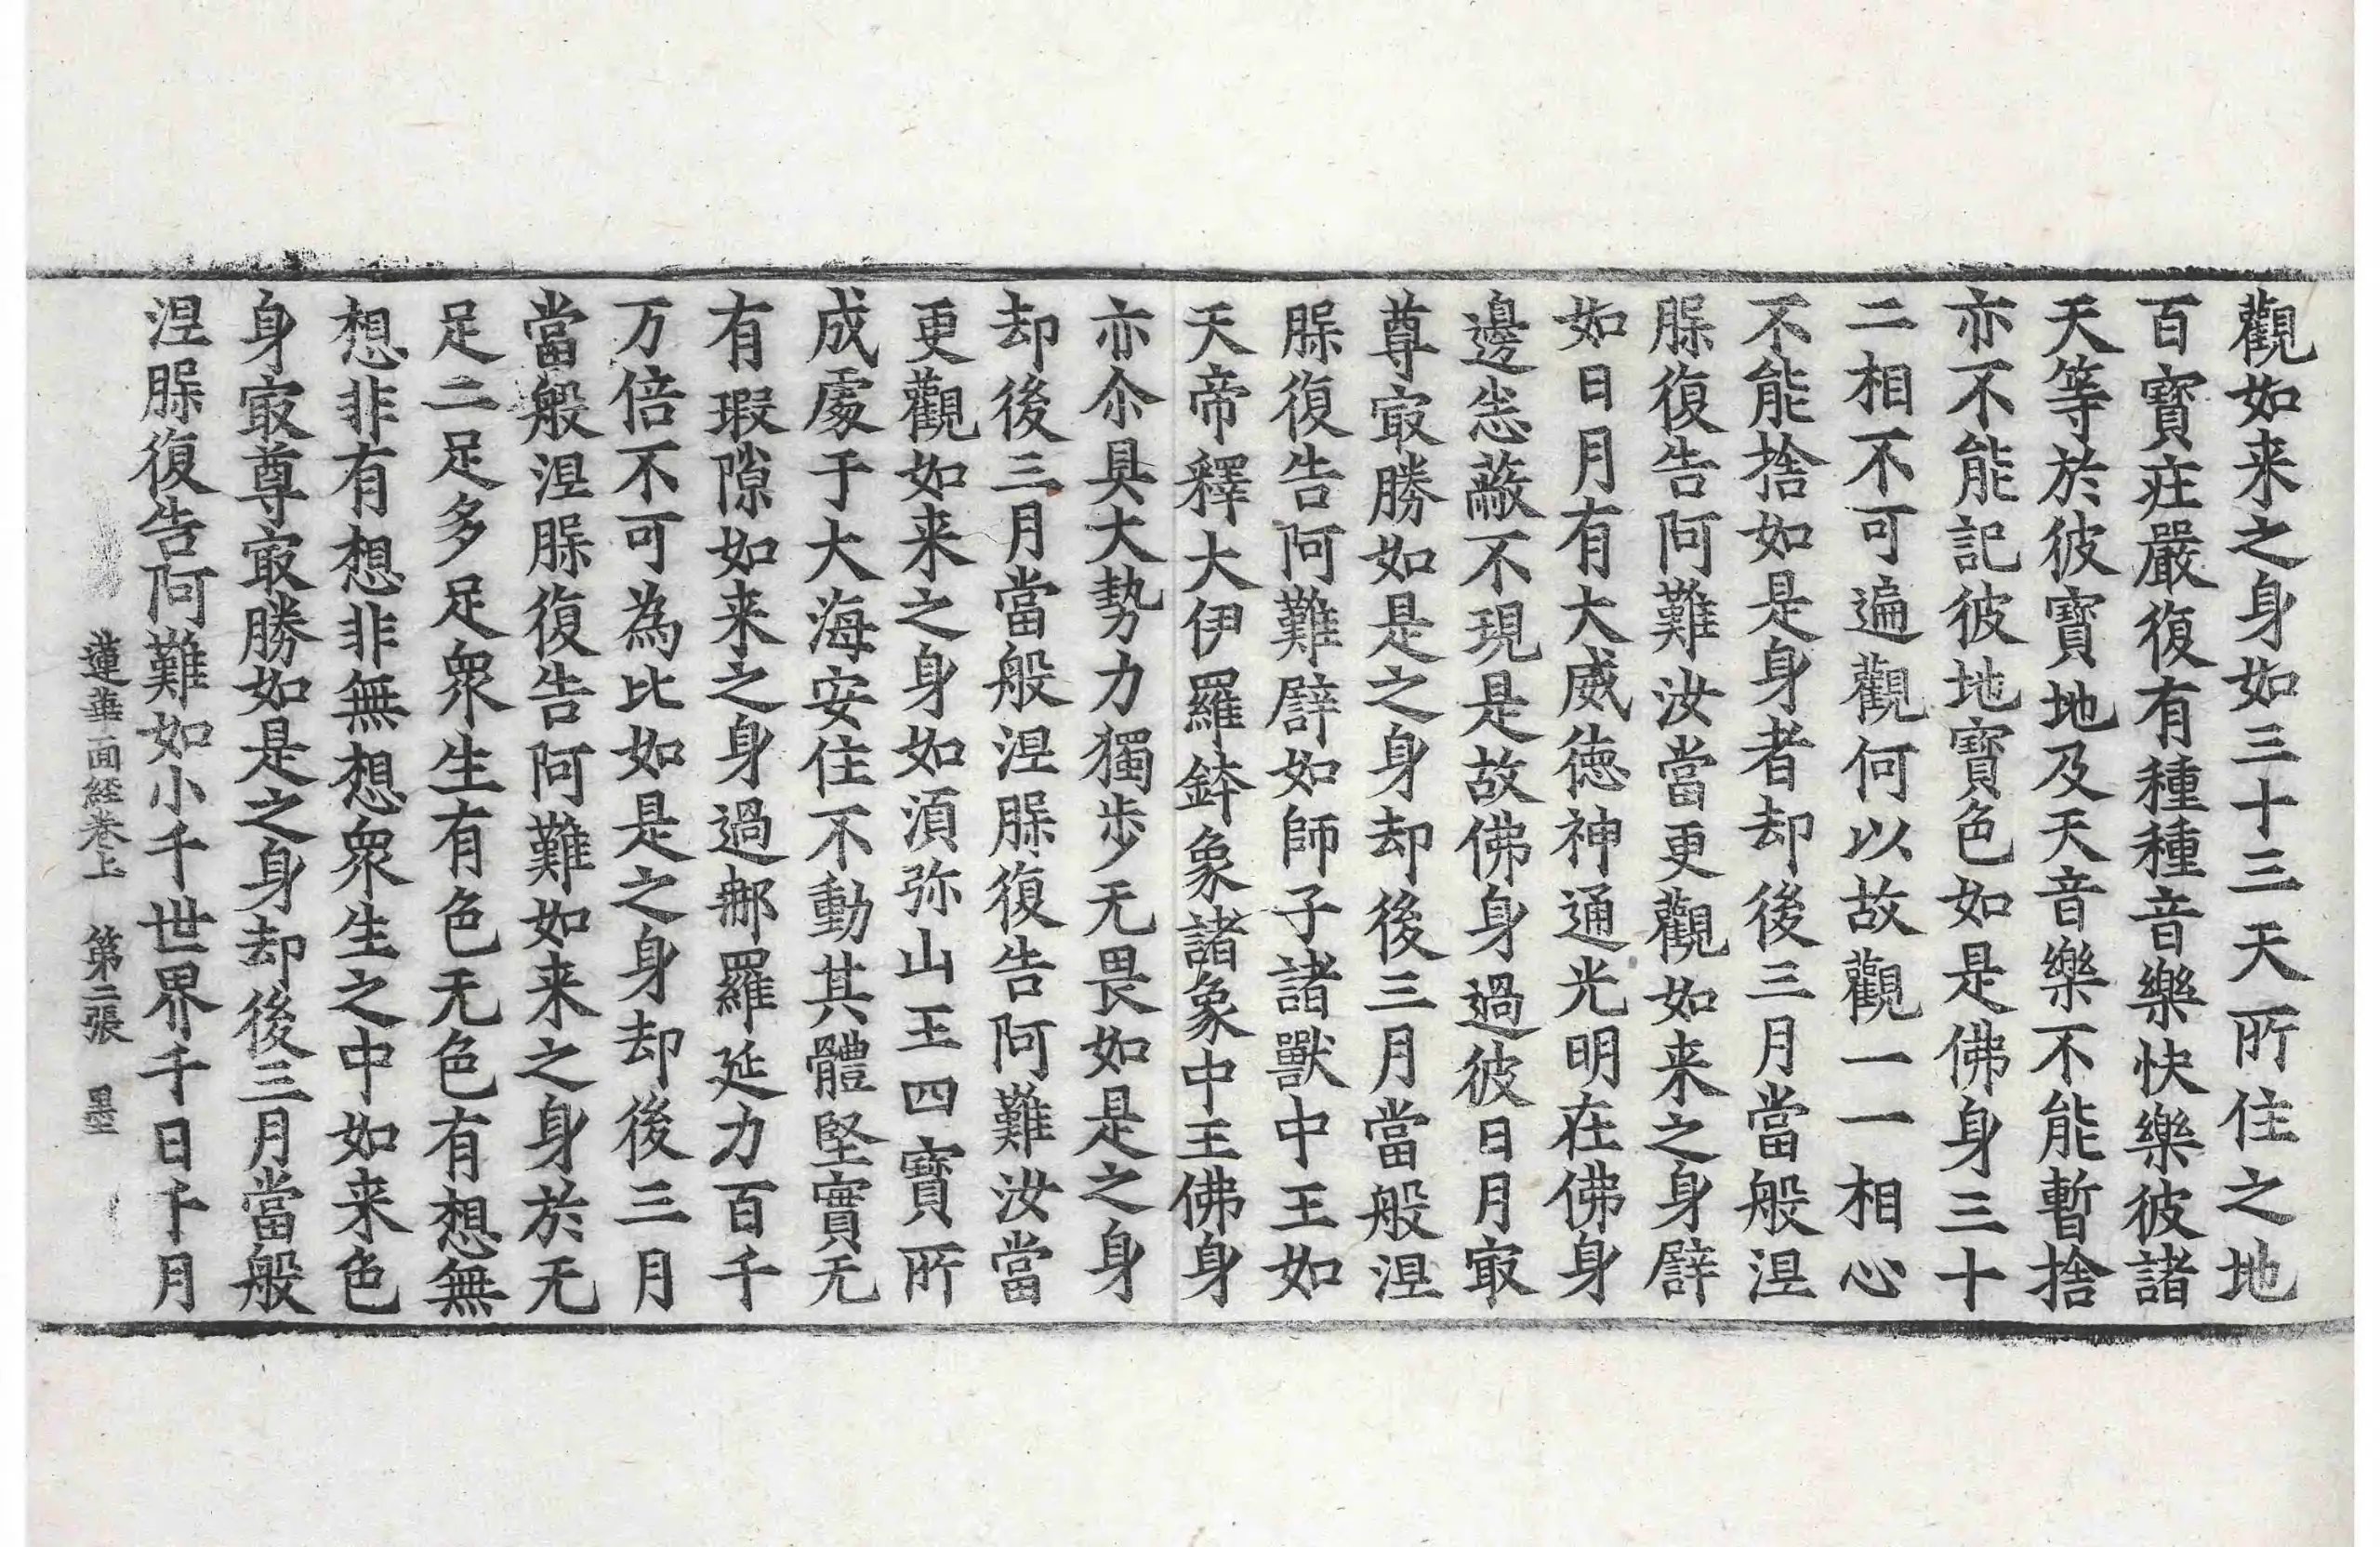 觀如来之身如三十三天所住之地
百寶疪嚴復有種種音樂快樂彼諸
天等於彼寶地及天音樂不能暫捨
亦不能記彼地寶色如是佛身三十
二相不可遍觀何以故觀一一相心
不能捨如是身者却後三月當般涅
𦖠復告阿難汝當更觀如来之身辟
如日月有大威徳神通光明在佛身
邊悉蔽不現是故佛身過彼日月㝡
尊㝡勝如是之身却後三月當般涅
𦖠復告阿難辟如師子諸獸中王如
天帝釋大伊羅鉢象諸象中王佛身
亦尒具大勢力獨歩无畏如是之身
却後三月當般涅𦖠復告阿難汝當
更觀如来之身如湏弥山王四寶所
成處于大海安住不動其體堅實无
有瑕隙如来之身過那羅延力百千
万倍不可為比如是之身却後三月
當般涅𦖠復告阿難如来之身於无
足二足多足衆生有色无色有想無
想非有想非無想衆生之中如来色
身㝡尊㝡勝如是之身却後三月當般
涅𦖠復告阿難如小千世界千日千月
蓮華面経卷上 第二張 墨